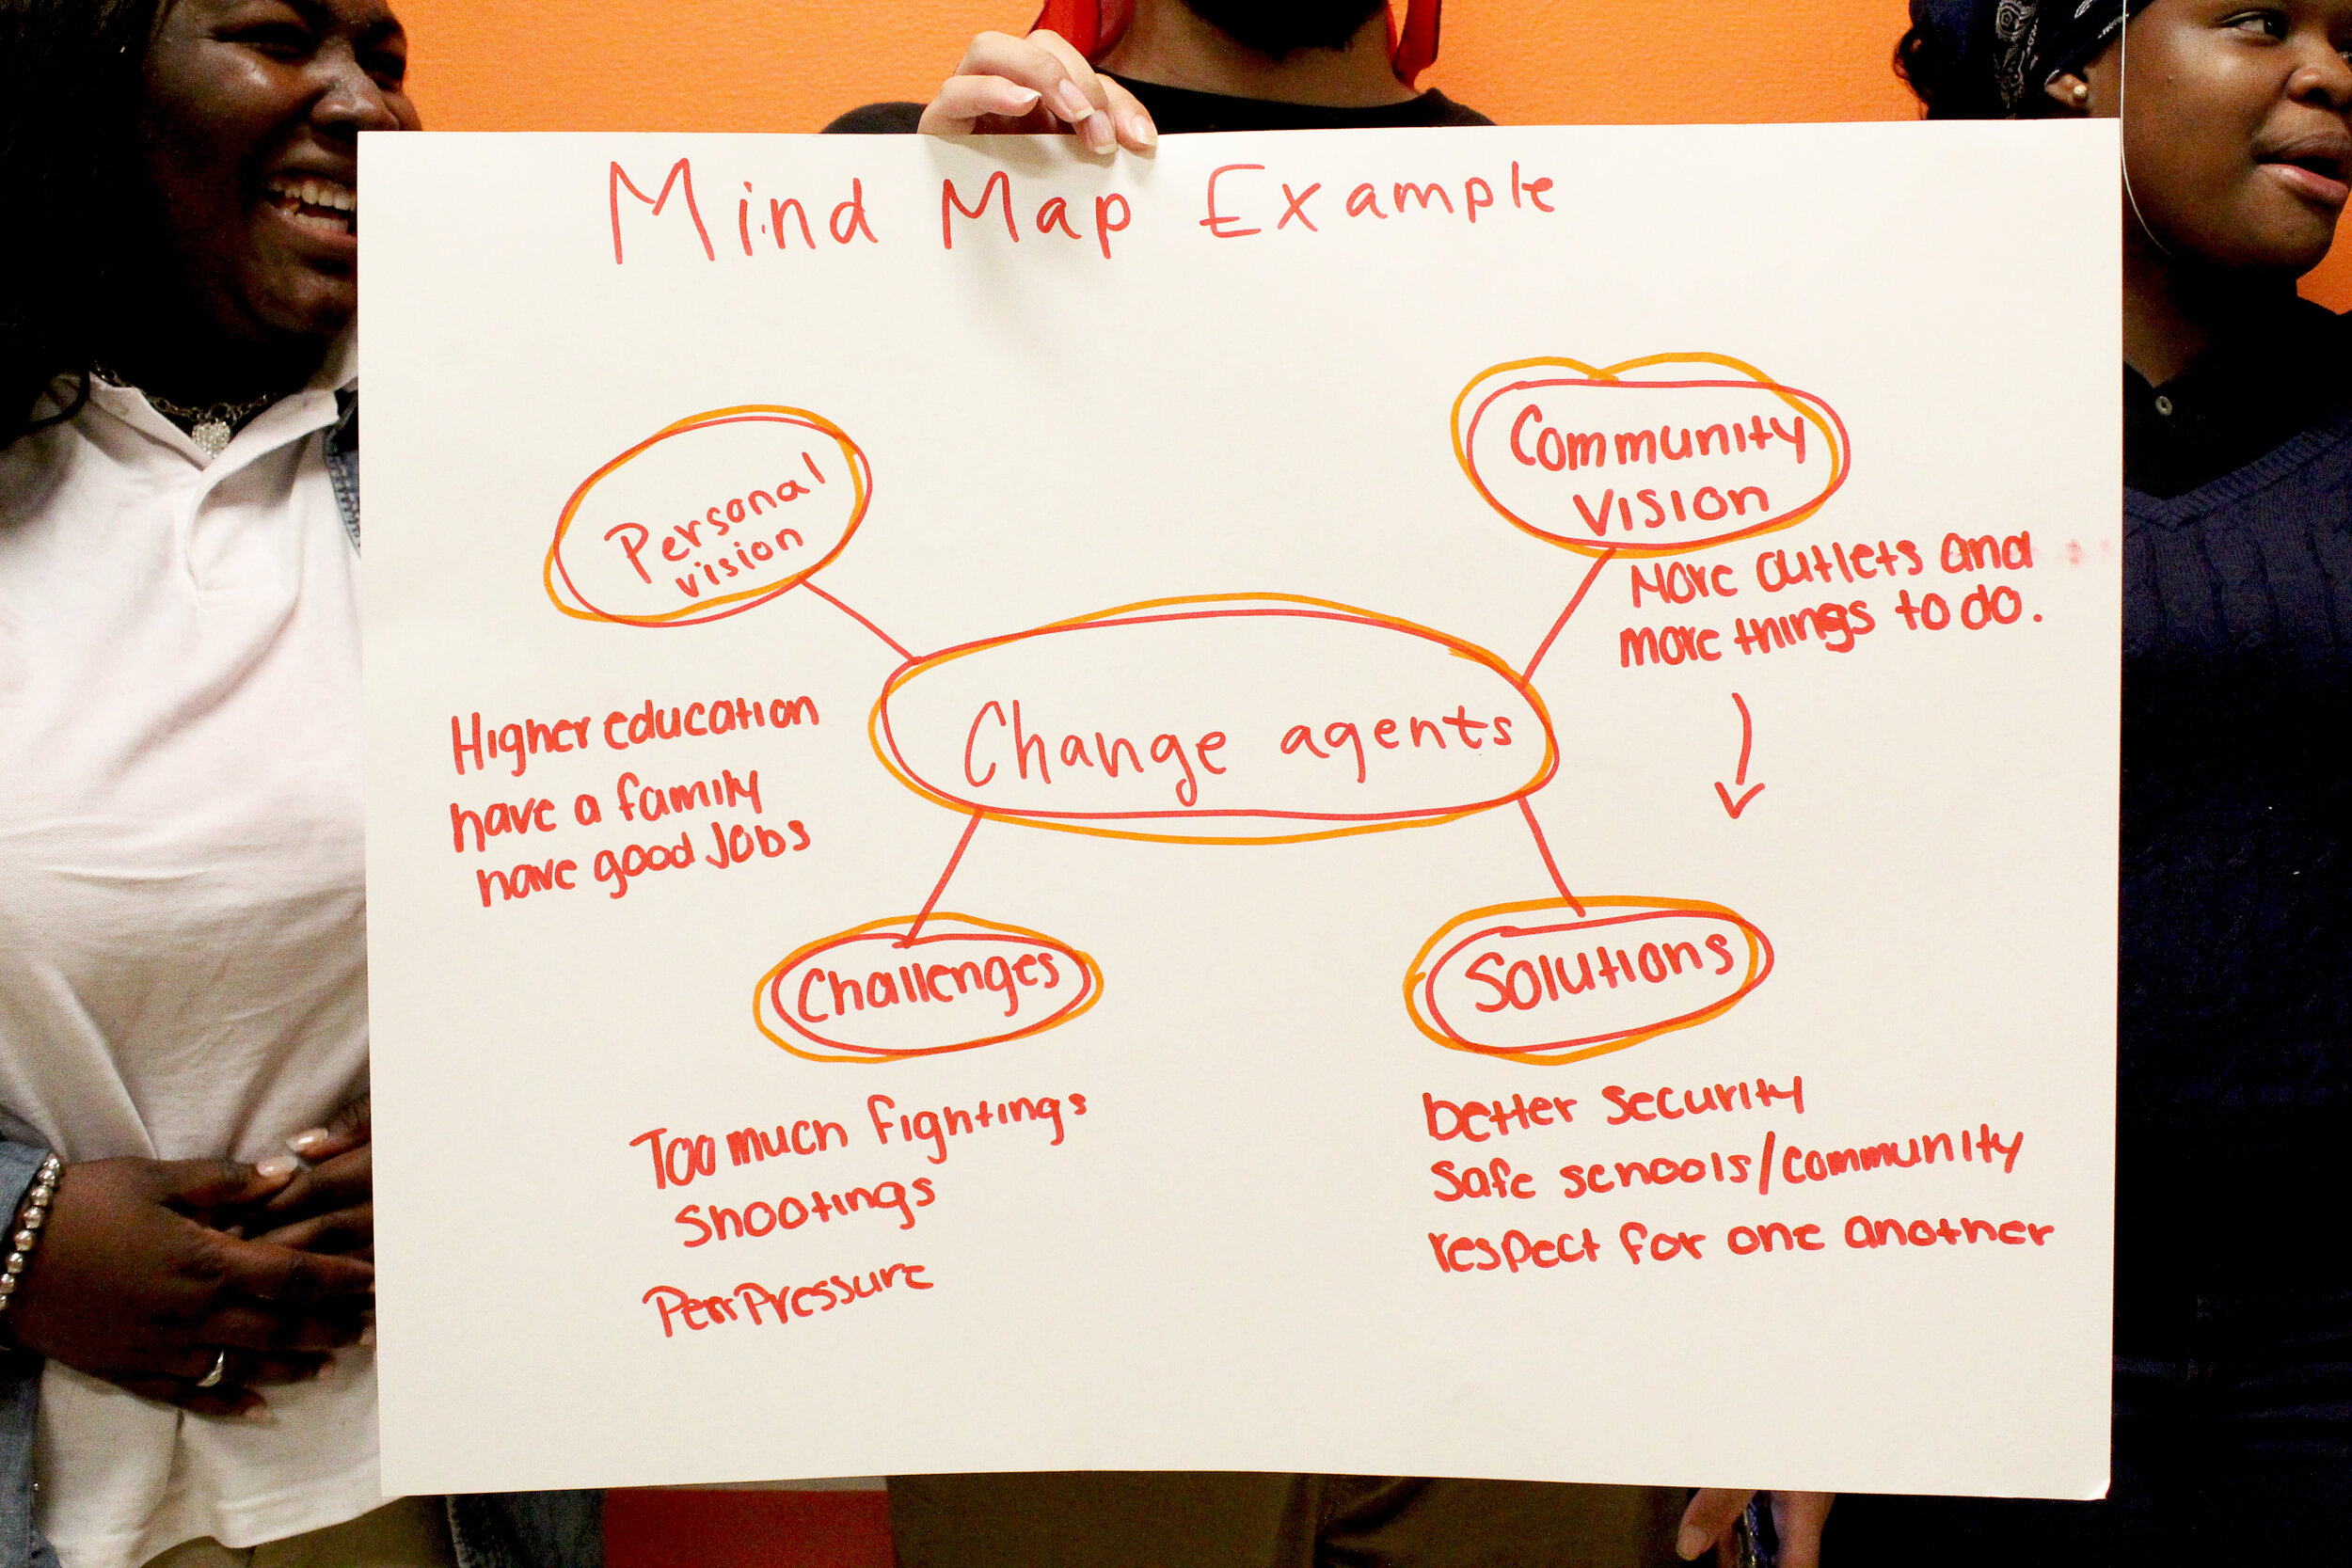 Mind Map Example
Personal
vision
Higher education
have a family
have good Jobs
Community
Vision
More outlets and
more things to do.
Change agents
Challenges
Too much fightings
Shootings
Perr Pressure
Solutions
better security
Safe schools/community
respect for one another